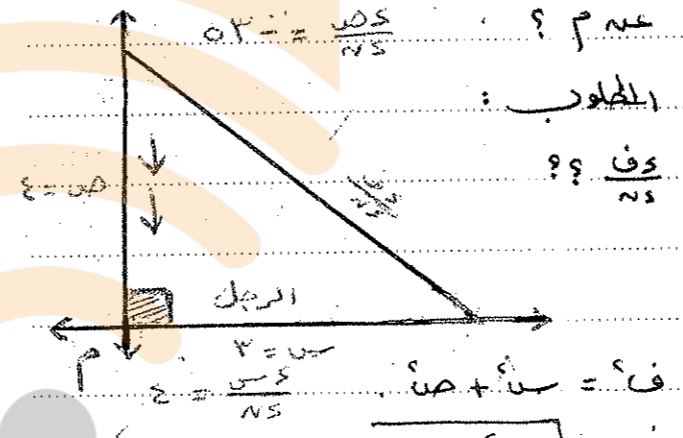 عن م ؟
ءص/ءن = -٣٥
المطلوب :
ءف/ءن ؟؟
ص = ٤
الرجل
س = ٣
م
ءس/ءن = ٤
ف² = س² + ص²